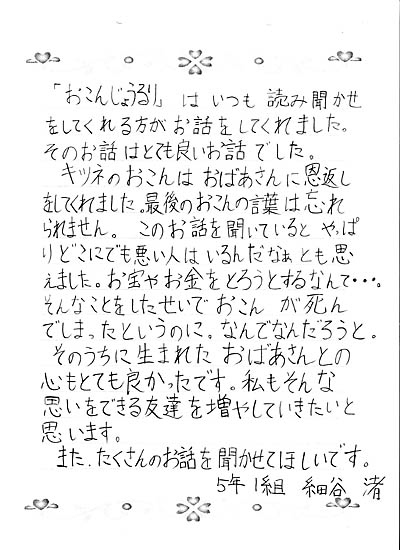 「おこんじょうるり」は いつも 読み聞かせ
をしてくれる方が お話をしてくれました。
そのお話はとても良いお話 でした。
キツネのおこんは おばあさんに恩返し
をしてくれました。最後のおこんの言葉は忘れ
られません。このお話を聞いていると やっぱ
りどこにでも悪い人は いるんだなぁ とも 思
えました。お宝やお金をとろうとするなんて・・・。
そんなことをしたせいで おこん が 死ん
でしまったというのに。なんでなんだろうと。
そのうちに 生まれた おばあさんとの
心もとても良かったです。私もそんな
思いをできる友達を増やしていきたいと
思います。
また、たくさんのお話を聞かせてほしいです。
5年1組 細谷 渚